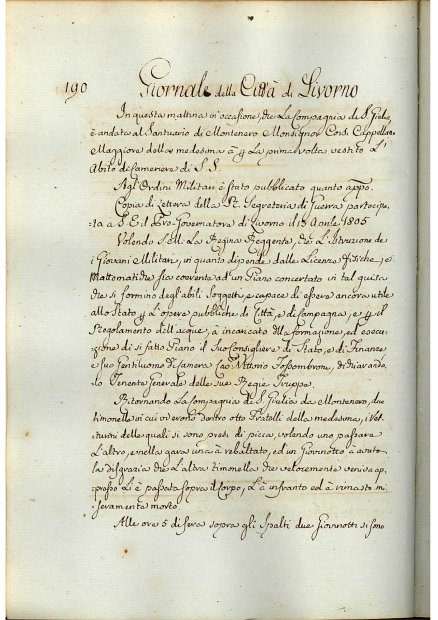 190 Giornale della Città di Livorno
In questa mattina in occasione, che La Compagnia di S. Giulia
è andata al Santuario di Montenero Monsignor Corsi Cappellan
Maggiore della medesima à p La prima volta vestito L'
Abito di Cameriere di S. S.
Agl'Ordini Militari è stato pubblicato quanto app.o
Copia di Lettera della R. Segreteria di Guerra partecipa
ta a S. E. il Pro-Governatore di Livorno il 13 Aprile 1805
Volendo S. M. La Regina Reggente, che L'Istruzione de
i Giovani Militari, in quanto dipende dalle Scienze fisiche, e
Mattematiche sia coerente ad un Piano concertato in tal guisa
che si formino degl'abili Soggetti, e capace di essere ancora utile
allo Stato p L'opere pubbliche di Città, e di Campagna, e p il
Regolamento dell'acque, à incaricato della formazione, ed esecu
zione di sì fatto Piano il Suo Consigliere di Stato, e di Finanze
e suo Gentiluomo di Camera Cav. Vittorio Fossombroni, dichiarando
lo Tenente Generale delle sue Regie Truppe.
Ritornando La Compagnia di S. Giulia da Montenero, due
timonelle in cui vi erono dentro otto Fratelli della medesima, i Vet
turini delle quali si sono presi di picca, volendo uno passare
L'altro, e nella gara una à rebaltato, ed un Giovinotto à avuto
la disgrazia che L'altra timonella che velocemente veniva ap
presso Li è passata sopra il Corpo, L'à infranto ed è rimasto mi
seramente morto
Alle ore 5 di sera sopra gli Spalti due Giovinotti si sono